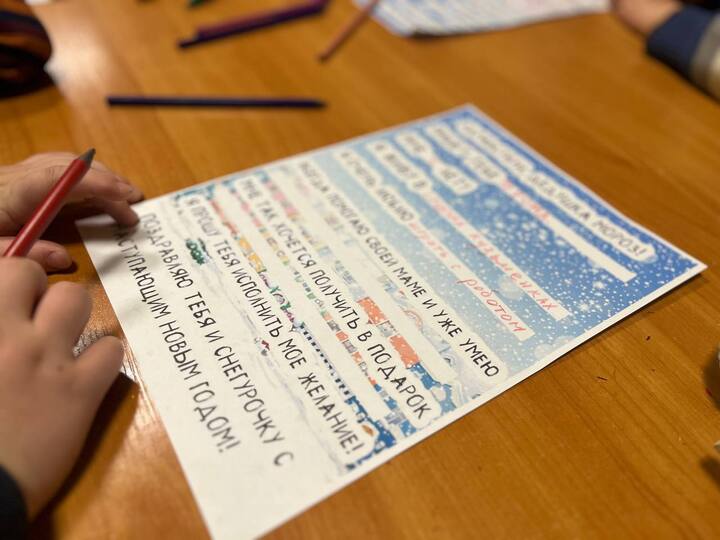 ЗДРАВСТВУЙ, ДЕДУШКА МОРОЗ!
МЕНЯ ЗОВУТ
МНЕ ЛЕТ
Я ЖИВУ В
Я ОЧЕНЬ ЛЮБЛЮ играть с роботом
ВСЕГДА ПОМОГАЮ СВОЕЙ МАМЕ И УЖЕ УМЕЮ
МНЕ ТАК ХОЧЕТСЯ ПОЛУЧИТЬ В ПОДАРОК
Я ПРОШУ ТЕБЯ ИСПОЛНИТЬ МОЕ ЖЕЛАНИЕ!
ПОЗДРАВЛЯЮ ТЕБЯ И СНЕГУРОЧКУ С
НАСТУПАЮЩИМ НОВЫМ ГОДОМ!